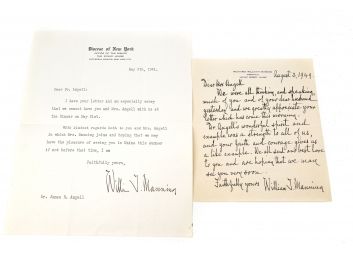 Diocese of New York
May 7th, 1941.
Dear Dr. Angell:
I have your letter and am especially sorry
that we cannot have you and Mrs. Angell with us at
the Dinner on May 21st.
With kindest regards both to you and Mrs. Angell
in which Mrs. Manning joins and hoping that we may
have the pleasure of seeing you in Maine this summer
if not before that time, I am
Faithfully yours,
William T. Manning
Dr. James R. Angell
August 3, 1949
Dear Mrs Angell
We were all thinking, and speaking
much of you and of your dear husband
yesterday and we greatly appreciate your
letter which has come this morning.
Dr Angell's wonderful spirit and
example was a strength to all of us,
and your faith and courage gives us
a like example. We all send our best love
to you and are hoping that we may
see you very soon.
Faithfully yours William T. Manning